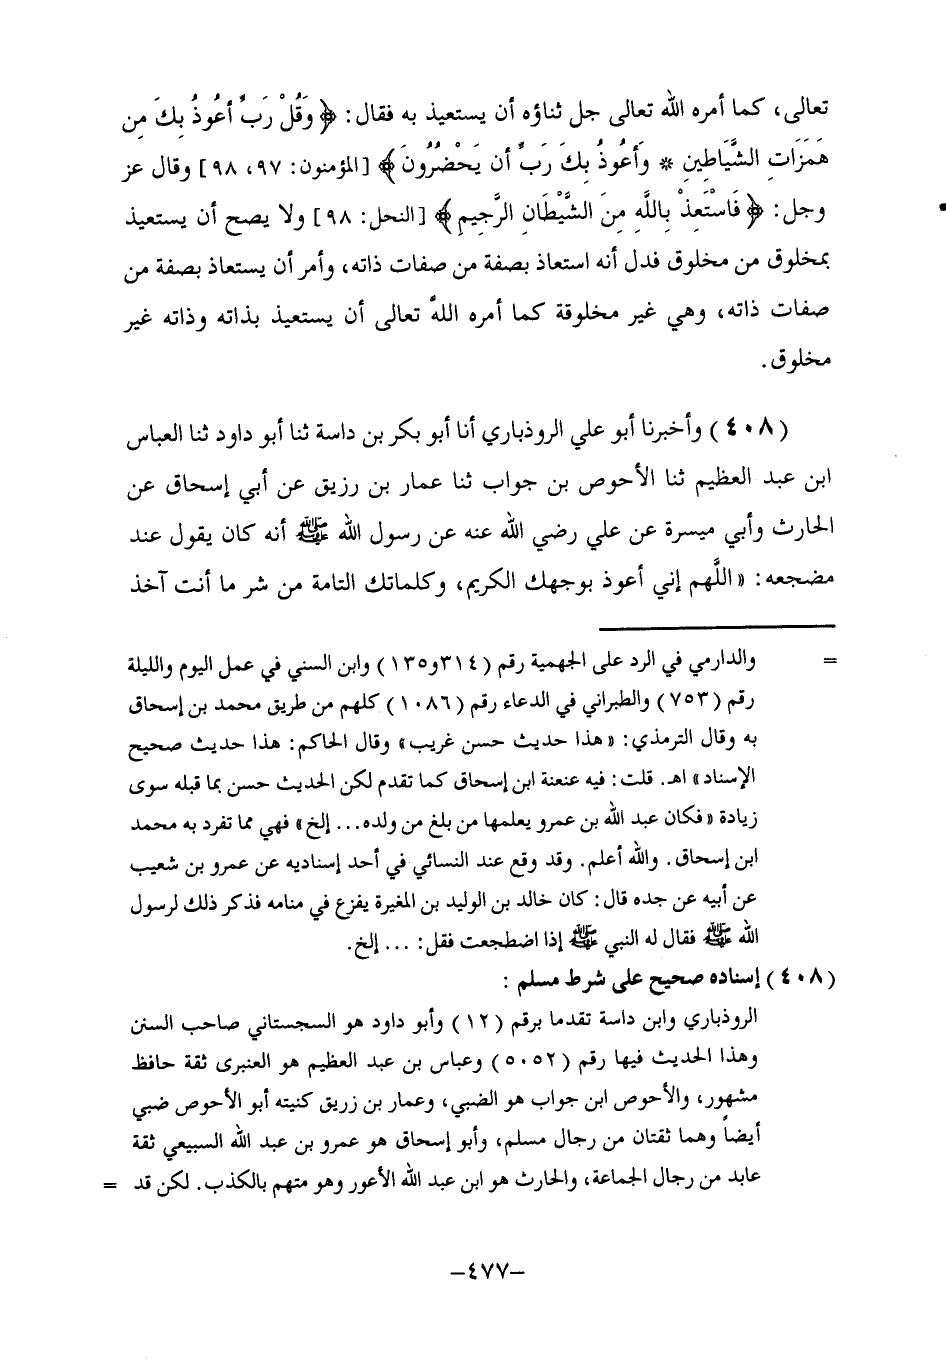 تعالى، كما أمره الله تعالى جل ثناؤه أن يستعيذ به فقال: ﴿وَقُلْ رَبِّ أعُوذُ بِكَ مِن
هَمَزَاتِ الشَّيَاطِينِ * وَأعُوذُ بِكَ رَبِّ أن يَحْضُرُونَ﴾ [المؤمنون: ٩٧، ٩٨] وقال عز
وجل: ﴿فَاسْتَعِذْ بِاللَّهِ مِنَ الشَّيْطَانِ الرَّجِيمِ﴾ [النحل: ٩٨] ولا يصح أن يستعيذ
بمخلوق من مخلوق فدل أنه استعاذ بصفة من صفات ذاته، وأمر أن يستعاذ بصفة من
صفات ذاته، وهي غير مخلوقة كما أمره اللهَّ تعالى أن يستعيذ بذاته وذاته غير
مخلوق.
(٤٠٨) وأخبرنا أبو علي الروذباري أنا أبو بكر بن داسة ثنا أبو داود ثنا العباس
ابن عبد العظيم ثنا الأحوص بن جواب ثنا عمار بن رزيق عن أبي إسحاق عن
الحارث وأبي ميسرة عن علي رضي الله عنه عن رسول الله ﷺ أنه كان يقول عند
مضجعه: «اللَّهم إني أعوذ بوجهك الكريم، وكلماتك التامة من شر ما أنت آخذ
= والدارمي في الرد على الجهمية رقم (٣١٤و١٣٥) وابن السني في عمل اليوم والليلة
رقم (٧٥٣) والطبراني في الدعاء رقم (١٠٨٦) كلهم من طريق محمد بن إسحاق
به وقال الترمذي: «هذا حديث حسن غريب» وقال الحاكم: هذا حديث صحيح
الإسناد» اهـ. قلت: فيه عنعنة ابن إسحاق كما تقدم لكن الحديث حسن بما قبله سوى
زيادة «فكان عبد الله بن عمرو يعلمها من بلغ من ولده... إلخ» فهي مما تفرد به محمد
ابن إسحاق. والله أعلم. وقد وقع عند النسائي في أحد إسناديه عن عمرو بن شعيب
عن أبيه عن جده قال: كان خالد بن الوليد بن المغيرة يفزع في منامه فذكر ذلك لرسول
الله ﷺ فقال له النبي ﷺ إذا اضطجعت فقل: ... إلخ.
(٤٠٨) إسناده صحيح على شرط مسلم :
الروذباري وابن داسة تقدما برقم (١٢) وأبو داود هو السجستاني صاحب السنن
وهذا الحديث فيها رقم (٥٠٥٢) وعباس بن عبد العظيم هو العنبرى ثقة حافظ
مشهور، والأحوص ابن جواب هو الضبي، وعمار بن زريق كنيته أبو الأحوص ضبي
أيضاً وهما ثقتان من رجال مسلم، وأبو إسحاق هو عمرو بن عبد الله السبيعي ثقة
عابد من رجال الجماعة، والحارث هو ابن عبد الله الأعور وهو متهم بالكذب. لكن قد =
–٤٧٧–